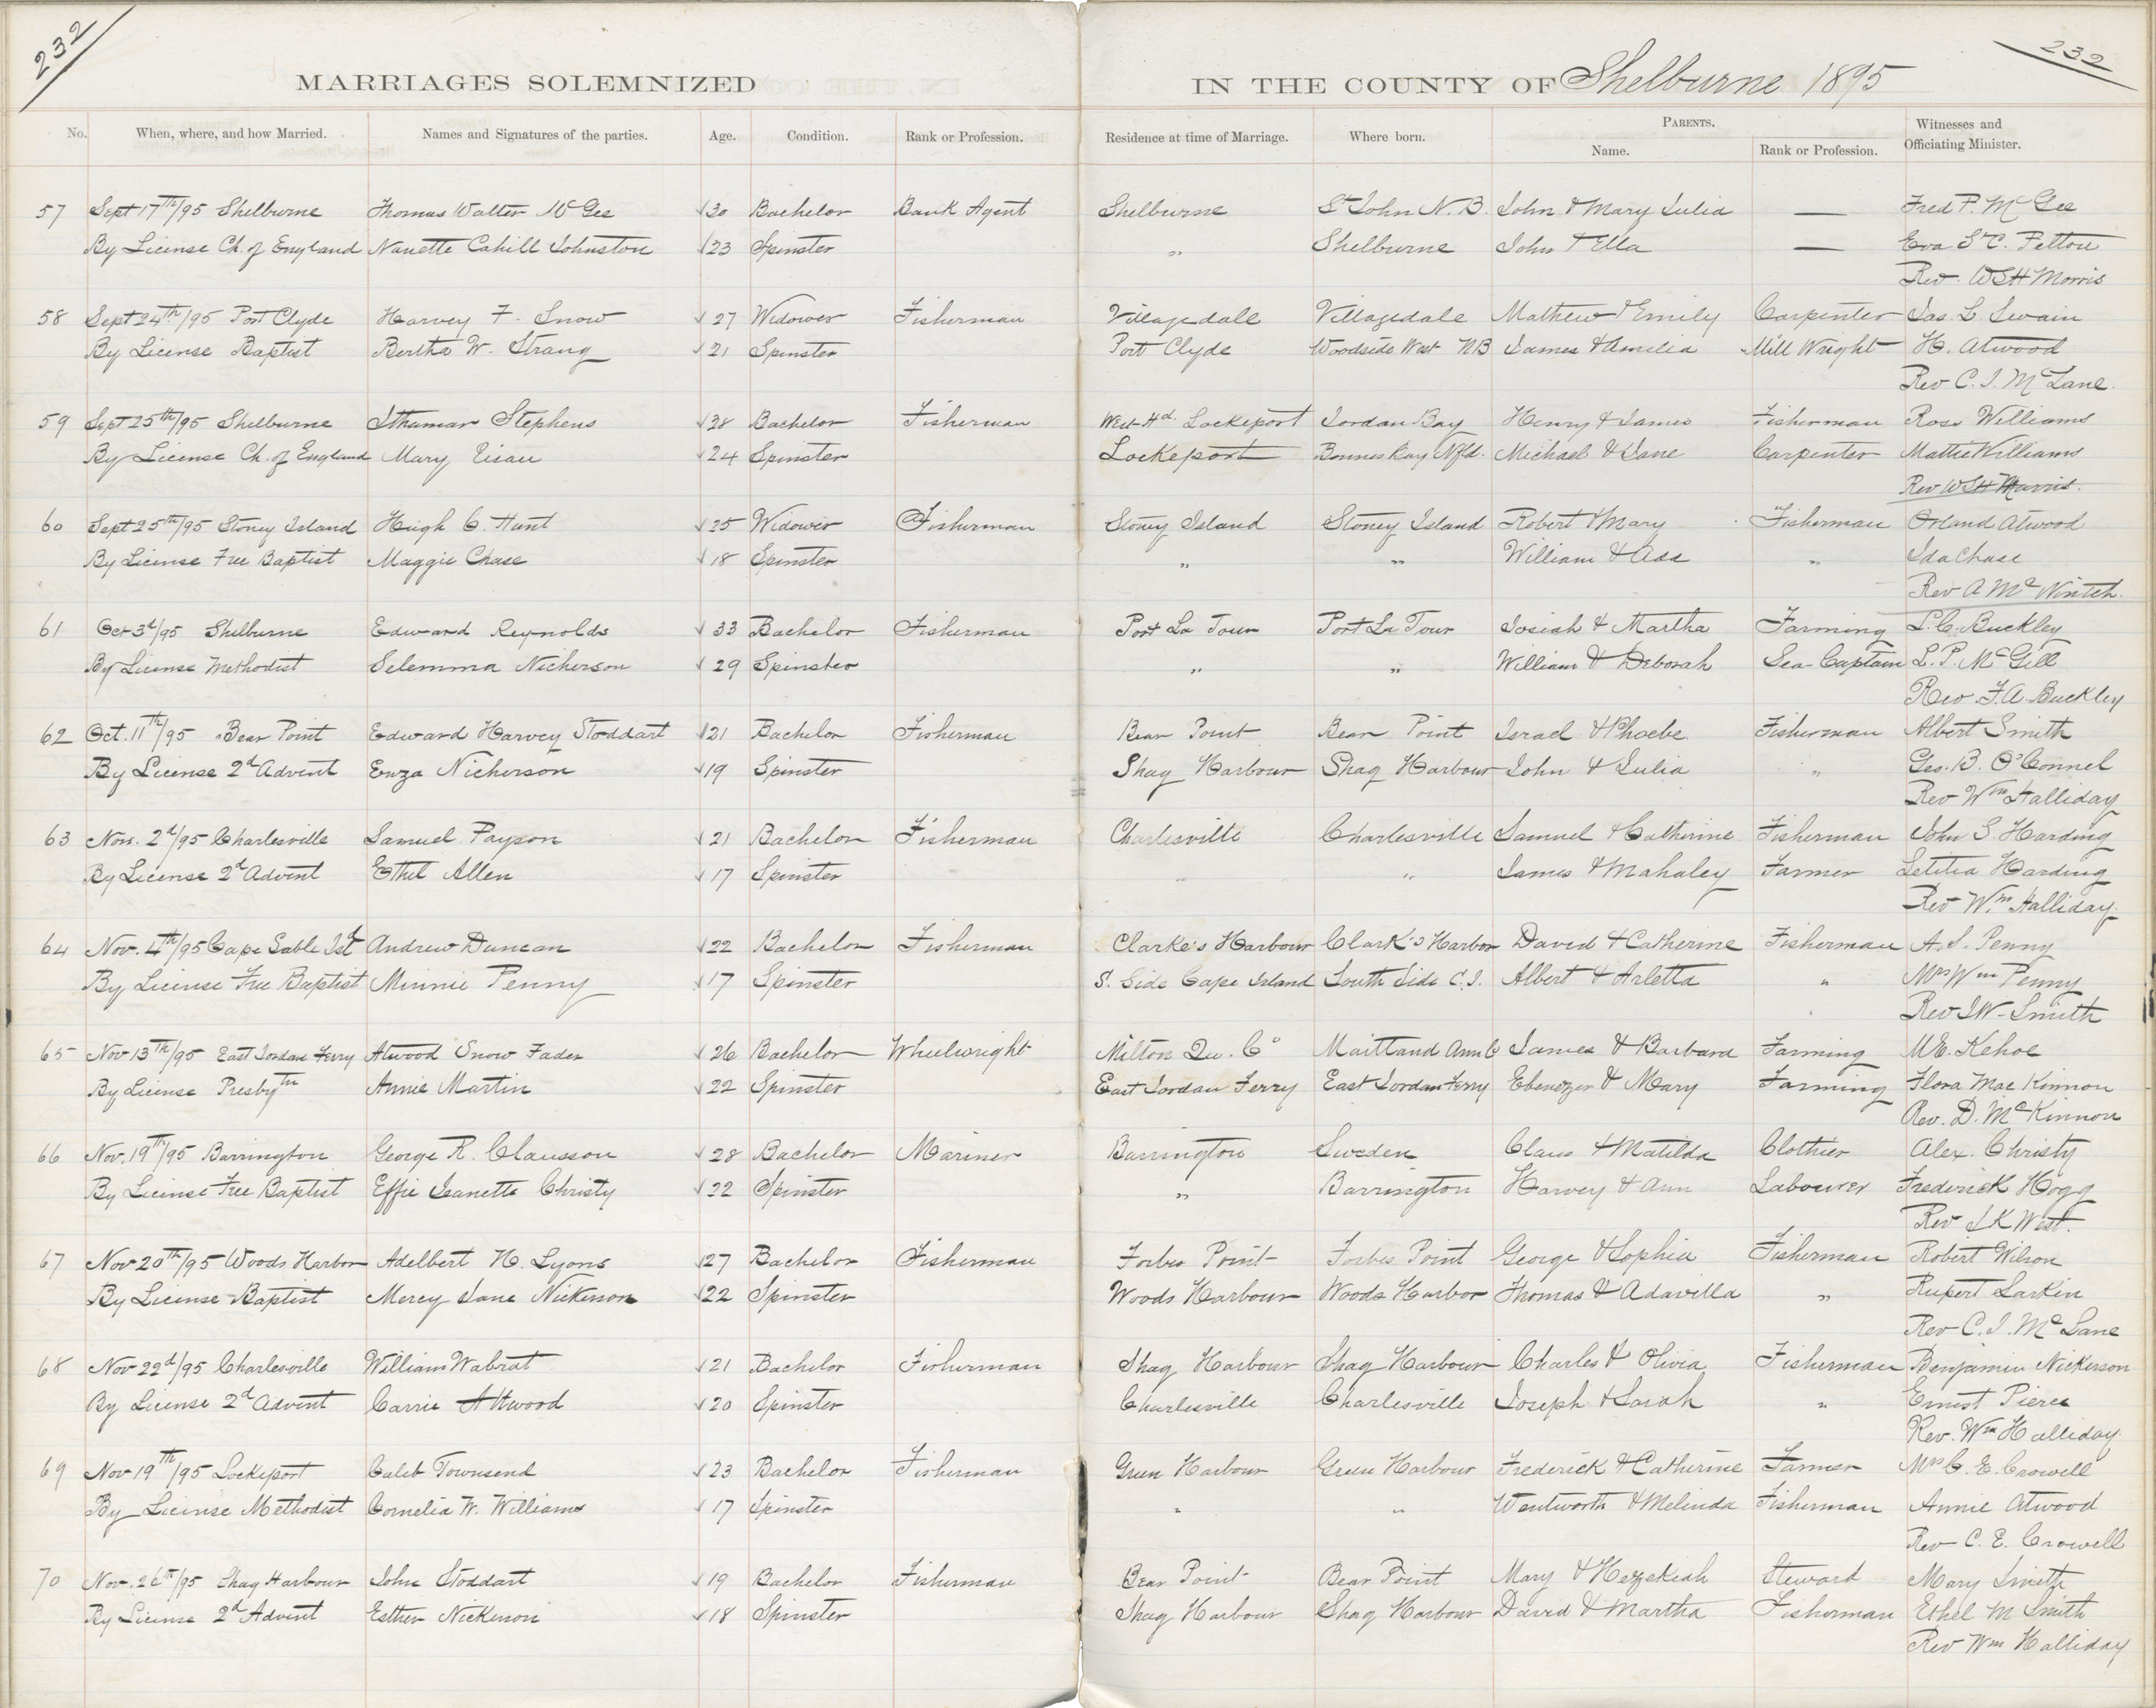 232
232
MARRIAGES SOLEMNIZED IN THE COUNTY OF Shelburne 1895
No. When, where, and how Married. Names and Signatures of the parties. Age. Condition. Rank or Profession. Residence at time of Marriage. Where born. PARENTS. Name. Rank or Profession. Witnesses and Officiating Minister.
57 Sept 17th/95 Shelburne Thomas Walter McGee √30 Bachelor Bank Agent Shelburne St John N.B. John & Mary Julia — Fred P. McGee
By License Ch. of England Nanette Cahill Johnston √23 Spinster " Shelburne John & Ella — Eva St C. Pelton
Rev. WSH Morris
58 Sept 24th/95 Port Clyde Harvey F. Snow √27 Widower Fisherman Villagedale Villagedale Mathew & Emily Carpenter Jas. L. Swain
By License Baptist Bertha W. Strang √21 Spinster Port Clyde Woodside West NB James & Amelia Mill Wright H. Atwood
Rev C. I. McLane.
59 Sept 25th/95 Shelburne Ithamar Stephens √38 Bachelor Fisherman West Hd. Lockeport Jordan Bay Henry & James Fisherman Ross Williams
By License Ch. of England Mary √24 Spinster Lockeport Bonnes Bay Nfld. Michael & Jane Carpenter Mattie Williams
Rev WSH Morris.
60 Sept 25th/95 Stoney Island Hugh C. Hunt √25 Widower Fisherman Stoney Island Stoney Island Robert & Mary Fisherman Orland Atwood
By License Free Baptist Maggie Chase √18 Spinster " " William & Ada " Ida Chase
Rev A Mc Nintch.
61 Oct 3d/95 Shelburne Edward Reynolds √33 Bachelor Fisherman Port La Tour Port La Tour Josiah & Martha Farming L.C. Buckley
By License Methodist Selemma Nickerson √29 Spinster " " William & Deborah Sea Captain L. P. McGill
Rev. F.A. Buckley
62 Oct. 11th/95 Bear Point Edward Harvey Stoddart √21 Bachelor Fisherman Bear Point Bear Point Israel & Phoebe Fisherman Albert Smith
By License 2d Advent Nickerson √19 Spinster Shag Harbour Shag Harbour John & Julia " Geo. B. O'Connel
Rev Wm Halliday
63 Nov. 2d/95 Charlesville Samuel Payson √21 Bachelor Fisherman Charlesville Charlesville Samuel & Catherine Fisherman John S Harding
By License 2d Advent Ethel Allen √17 Spinster " " James & Mahaley Farmer Letitia Harding
Rev Wm. Halliday.
64 Nov. 4th/95 Cape Sable Isd Andrew Duncan √22 Bachelor Fisherman Clarke's Harbour Clark's Harbor David & Catherine Fisherman A. S. Penny
By License Free Baptist Minnie Penny √17 Spinster S. Side Cape Island South Side C.I. Albert & Arletta " Mrs Wm Penny
Rev J W. Smith
65 Nov 13th/95 East Jordan Ferry Atwood Snow Fader √26 Bachelor Wheelwright Milton Qu. Co Maitland Ann Co James & Barbara Farming M.E. Kehoe
By License Presbytn Annie Martin √22 Spinster East Jordan Ferry East Jordan Ferry Ebenezer & Mary Farming Flora MacKinnon
Rev. D. McKinnon
66 Nov. 19th/95 Barrington George R. Clausson √28 Bachelor Mariner Barrington Sweden Claus & Matilda Clothier Alex. Christy
By License Free Baptist Effie Jeanette Christy √22 Spinster " Barrington Harvey & Ann Labourer Frederick Hogg
Rev J K West.
67 Nov 20th/95 Woods Harbor Adelbert H. Lyons √27 Bachelor Fisherman Forbes Point Forbes Point George & Sophia Fisherman Robert Wilson
By License Baptist Mercy Jane Nickerson √22 Spinster Woods Harbour Woods Harbor Thomas & Adavilla " Rupert Larkin
Rev C. I. McLane
68 Nov 22d/95 Charlesville William Wabrat √21 Bachelor Fisherman Shag Harbour Shag Harbour Charles & Olivia Fisherman Benjamin Nickerson
By License 2d Advent Carrie Attwood √20 Spinster Charlesville Charlesville Joseph & Sarah " Ernest Pierce
Rev. Wm Halliday.
69 Nov 19th/95 Lockeport Caleb Townsend √23 Bachelor Fisherman Green Harbour Green Harbour Frederick & Catherine Farmer Mrs C. E. Crowell
By License Methodist Cornelia W. Williams √17 Spinster " " Wentworth & Melinda Fisherman Annie Atwood
Rev C. E. Crowell
70 Nov. 26th/95 Shag Harbour John Stoddart √19 Bachelor Fisherman Bear Point Bear Point Mary & Hezekiah Steward Mary Smith
By License 2d Advent Esther Nickerson √18 Spinster Shag Harbour Shag Harbour David & Martha Fisherman Ethel M Smith
Rev Wm Halliday